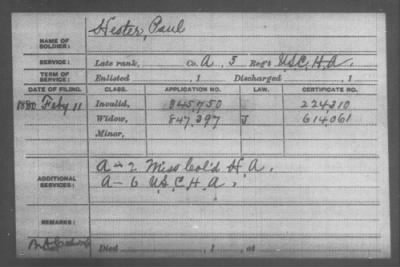 NAME OF SOLDIER: Hester, Paul
SERVICE: Late rank, Co. A, 5 Reg't U.S.C.H.A.
TERM OF SERVICE: Enlisted , 1 Discharged , 1
DATE OF FILING. CLASS. APPLICATION NO. LAW. CERTIFICATE NO.
1880 Feby 11 Invalid, 345,750 224,310
Widow, 847,397 J 614,061
Minor,
ADDITIONAL SERVICES: A - 2 Miss Col'd H.A.
A - 6 U.S.C.H.A.
REMARKS:
Died , 1 , at